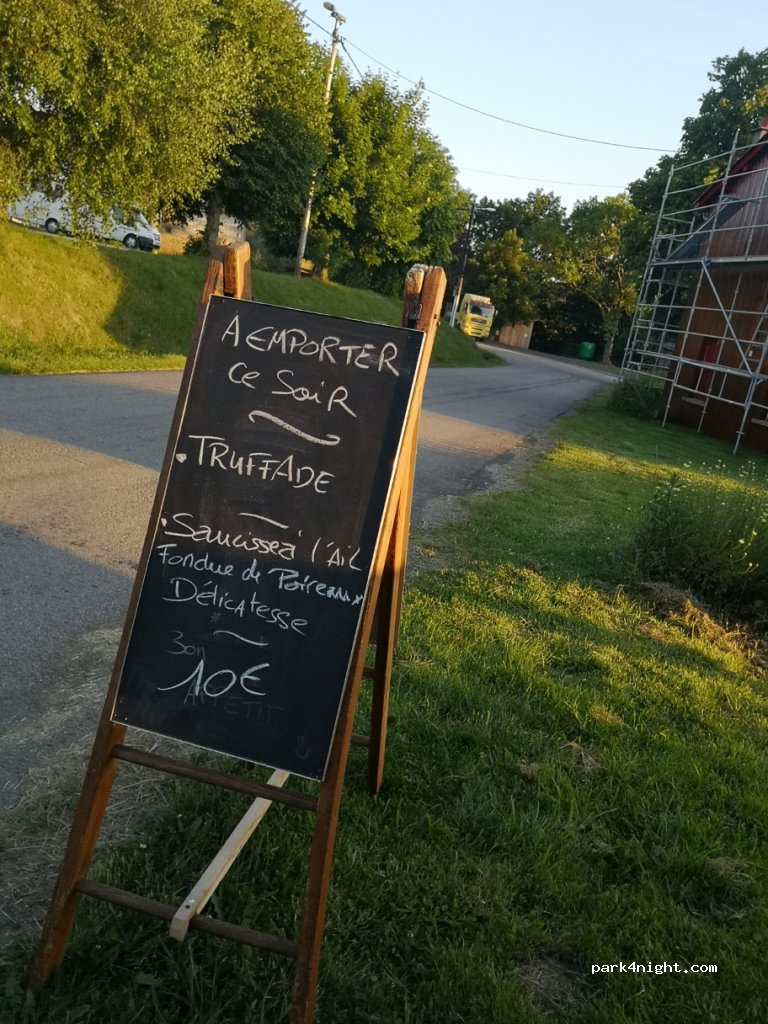 A EMPORTER
Ce SoiR
• TRUFFADE
• Saucisse à l'AiL
Fondue de Poireaux
Délicatesse
Bon
10€
APPETIT
park4night.com